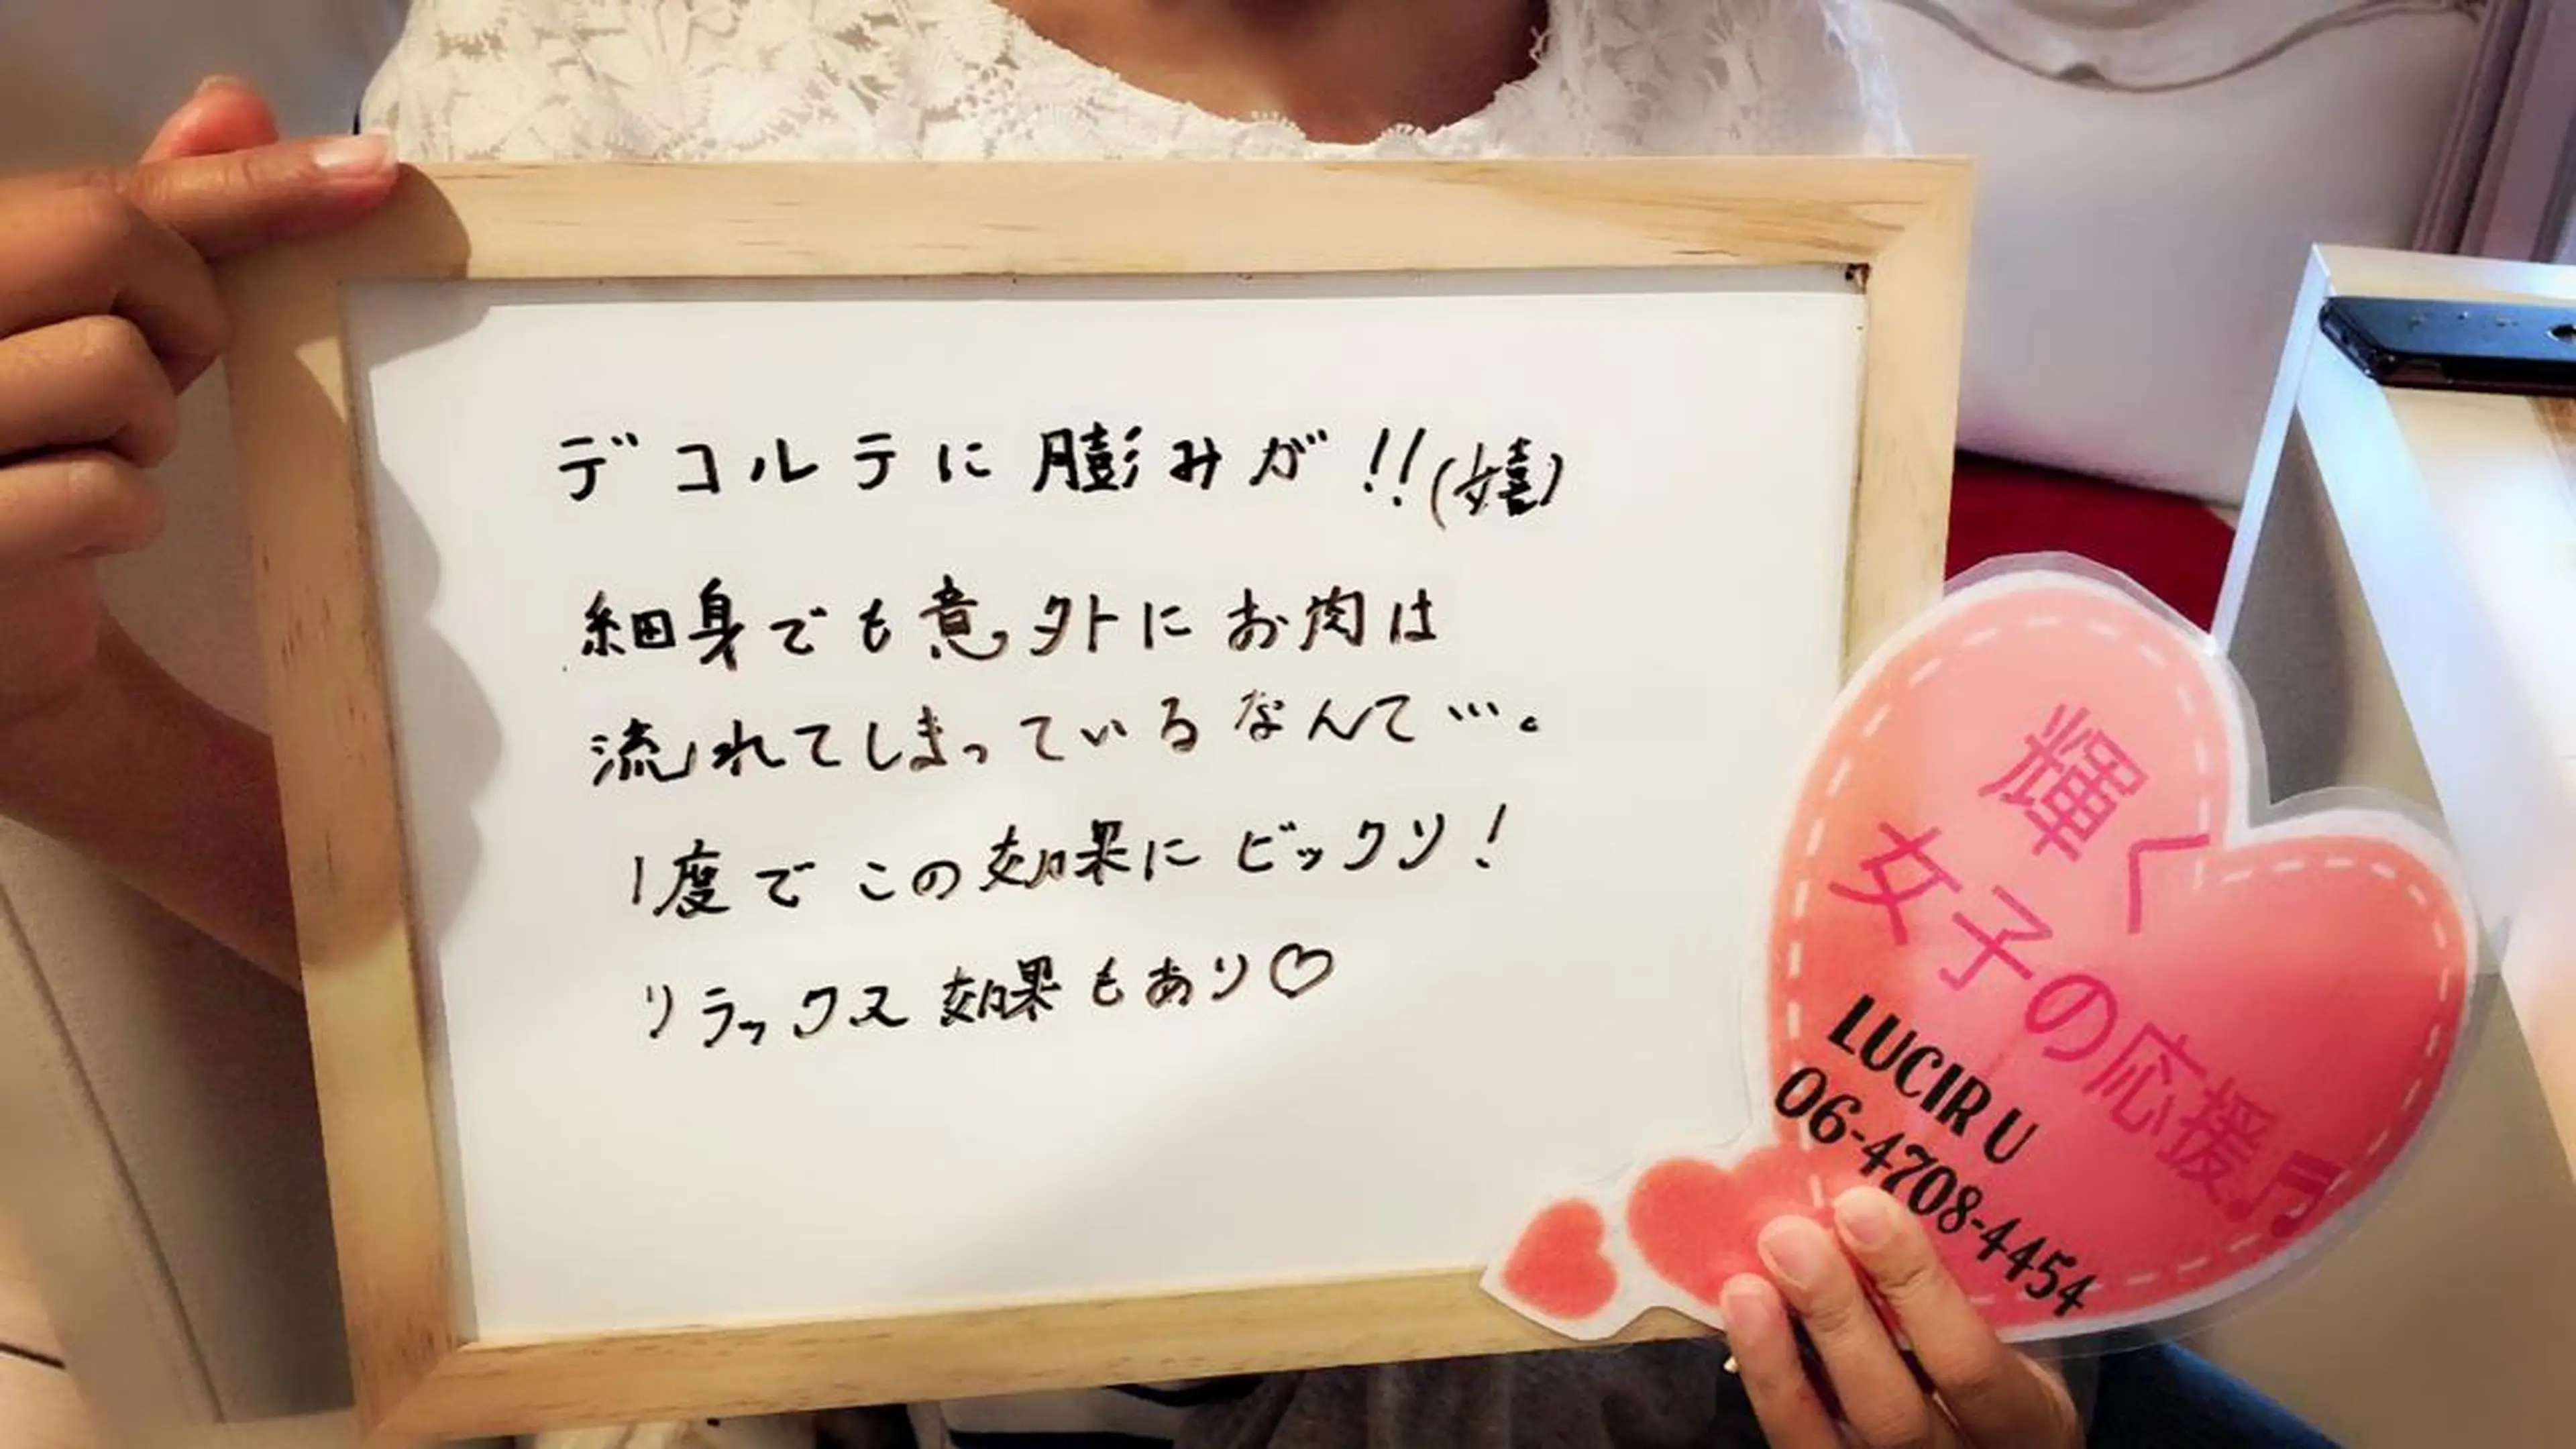 デコルテに膨みが!!(嬉)
細身でも意外にお肉は
流れてしまっているなんて…。
1度でこの効果にビックリ!
リラックス効果もあり♡
輝く
女子の応援♬
LUCIR U
06-4708-4454